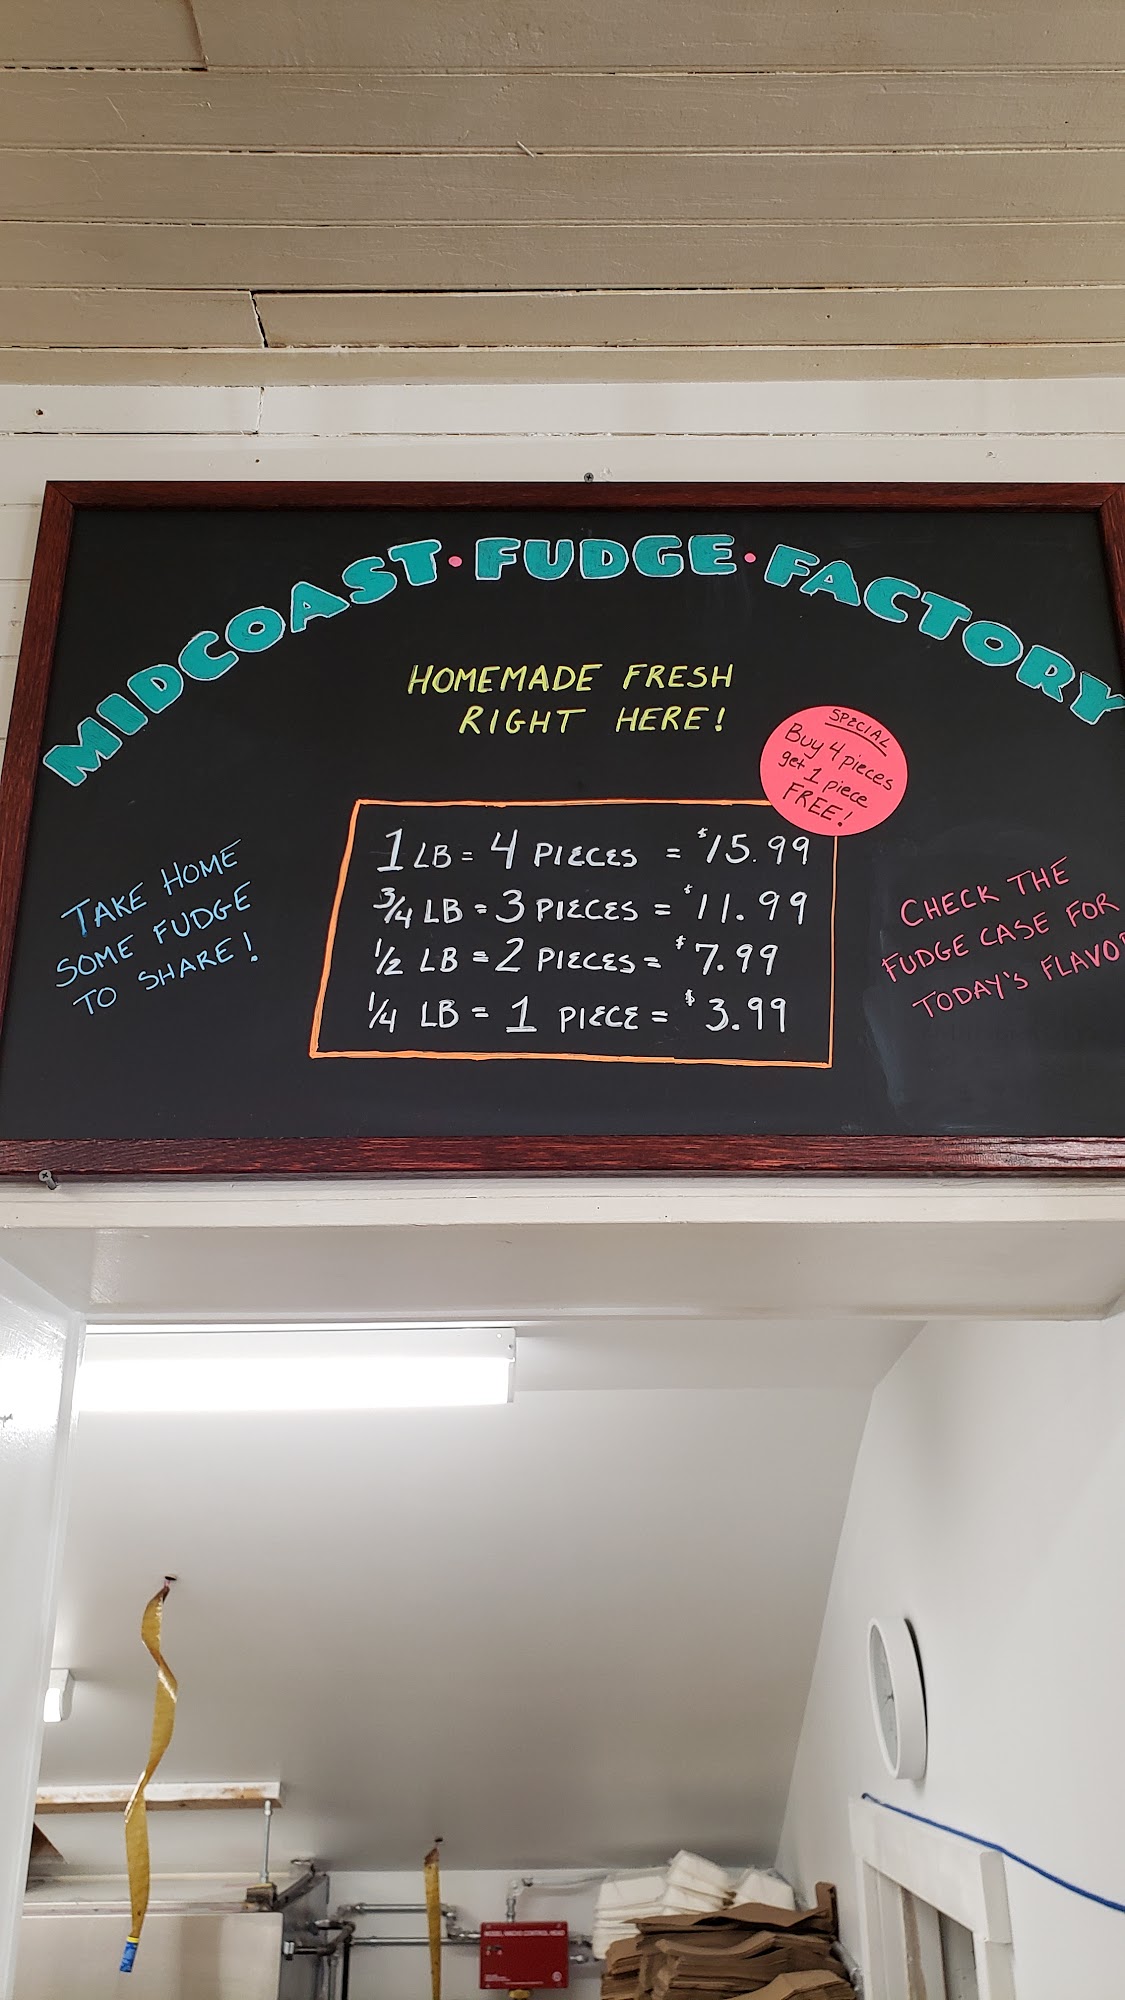 MIDCOAST • FUDGE • FACTORY
HOMEMADE FRESH
RIGHT HERE!
SPECIAL
Buy 4 pieces
get 1 piece
FREE!
1 LB = 4 PIECES = $15.99
3/4 LB = 3 PIECES = $11.99
1/2 LB = 2 PIECES = $7.99
1/4 LB = 1 PIECE = $3.99
TAKE HOME
SOME FUDGE
TO SHARE!
CHECK THE
FUDGE CASE FOR
TODAY'S FLAVO